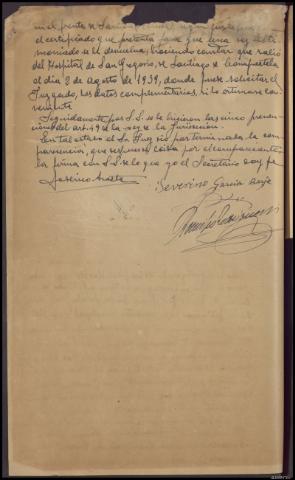 en el frente de
el certificado que presenta para que una vez testi
moniado se le devuelva, haciendo constar que salió
del Hospital de San Gregorio, de Santiago de Compostela
el día 2 de agosto de 1939, donde puede solicitar el
Juzgado, los datos complementarios, si lo estimase con
veniente
Seguidamente por S.S. se le hicieron las cinco preven
ciones del artº 49 de la ley de la Jurisdicción.
En tal estado el Sr. Juez dió por terminada la com
parecencia, que después de leida por el compareciente
la firma con S.S. de lo que yo el Secretario doy fe
Severino Garcia